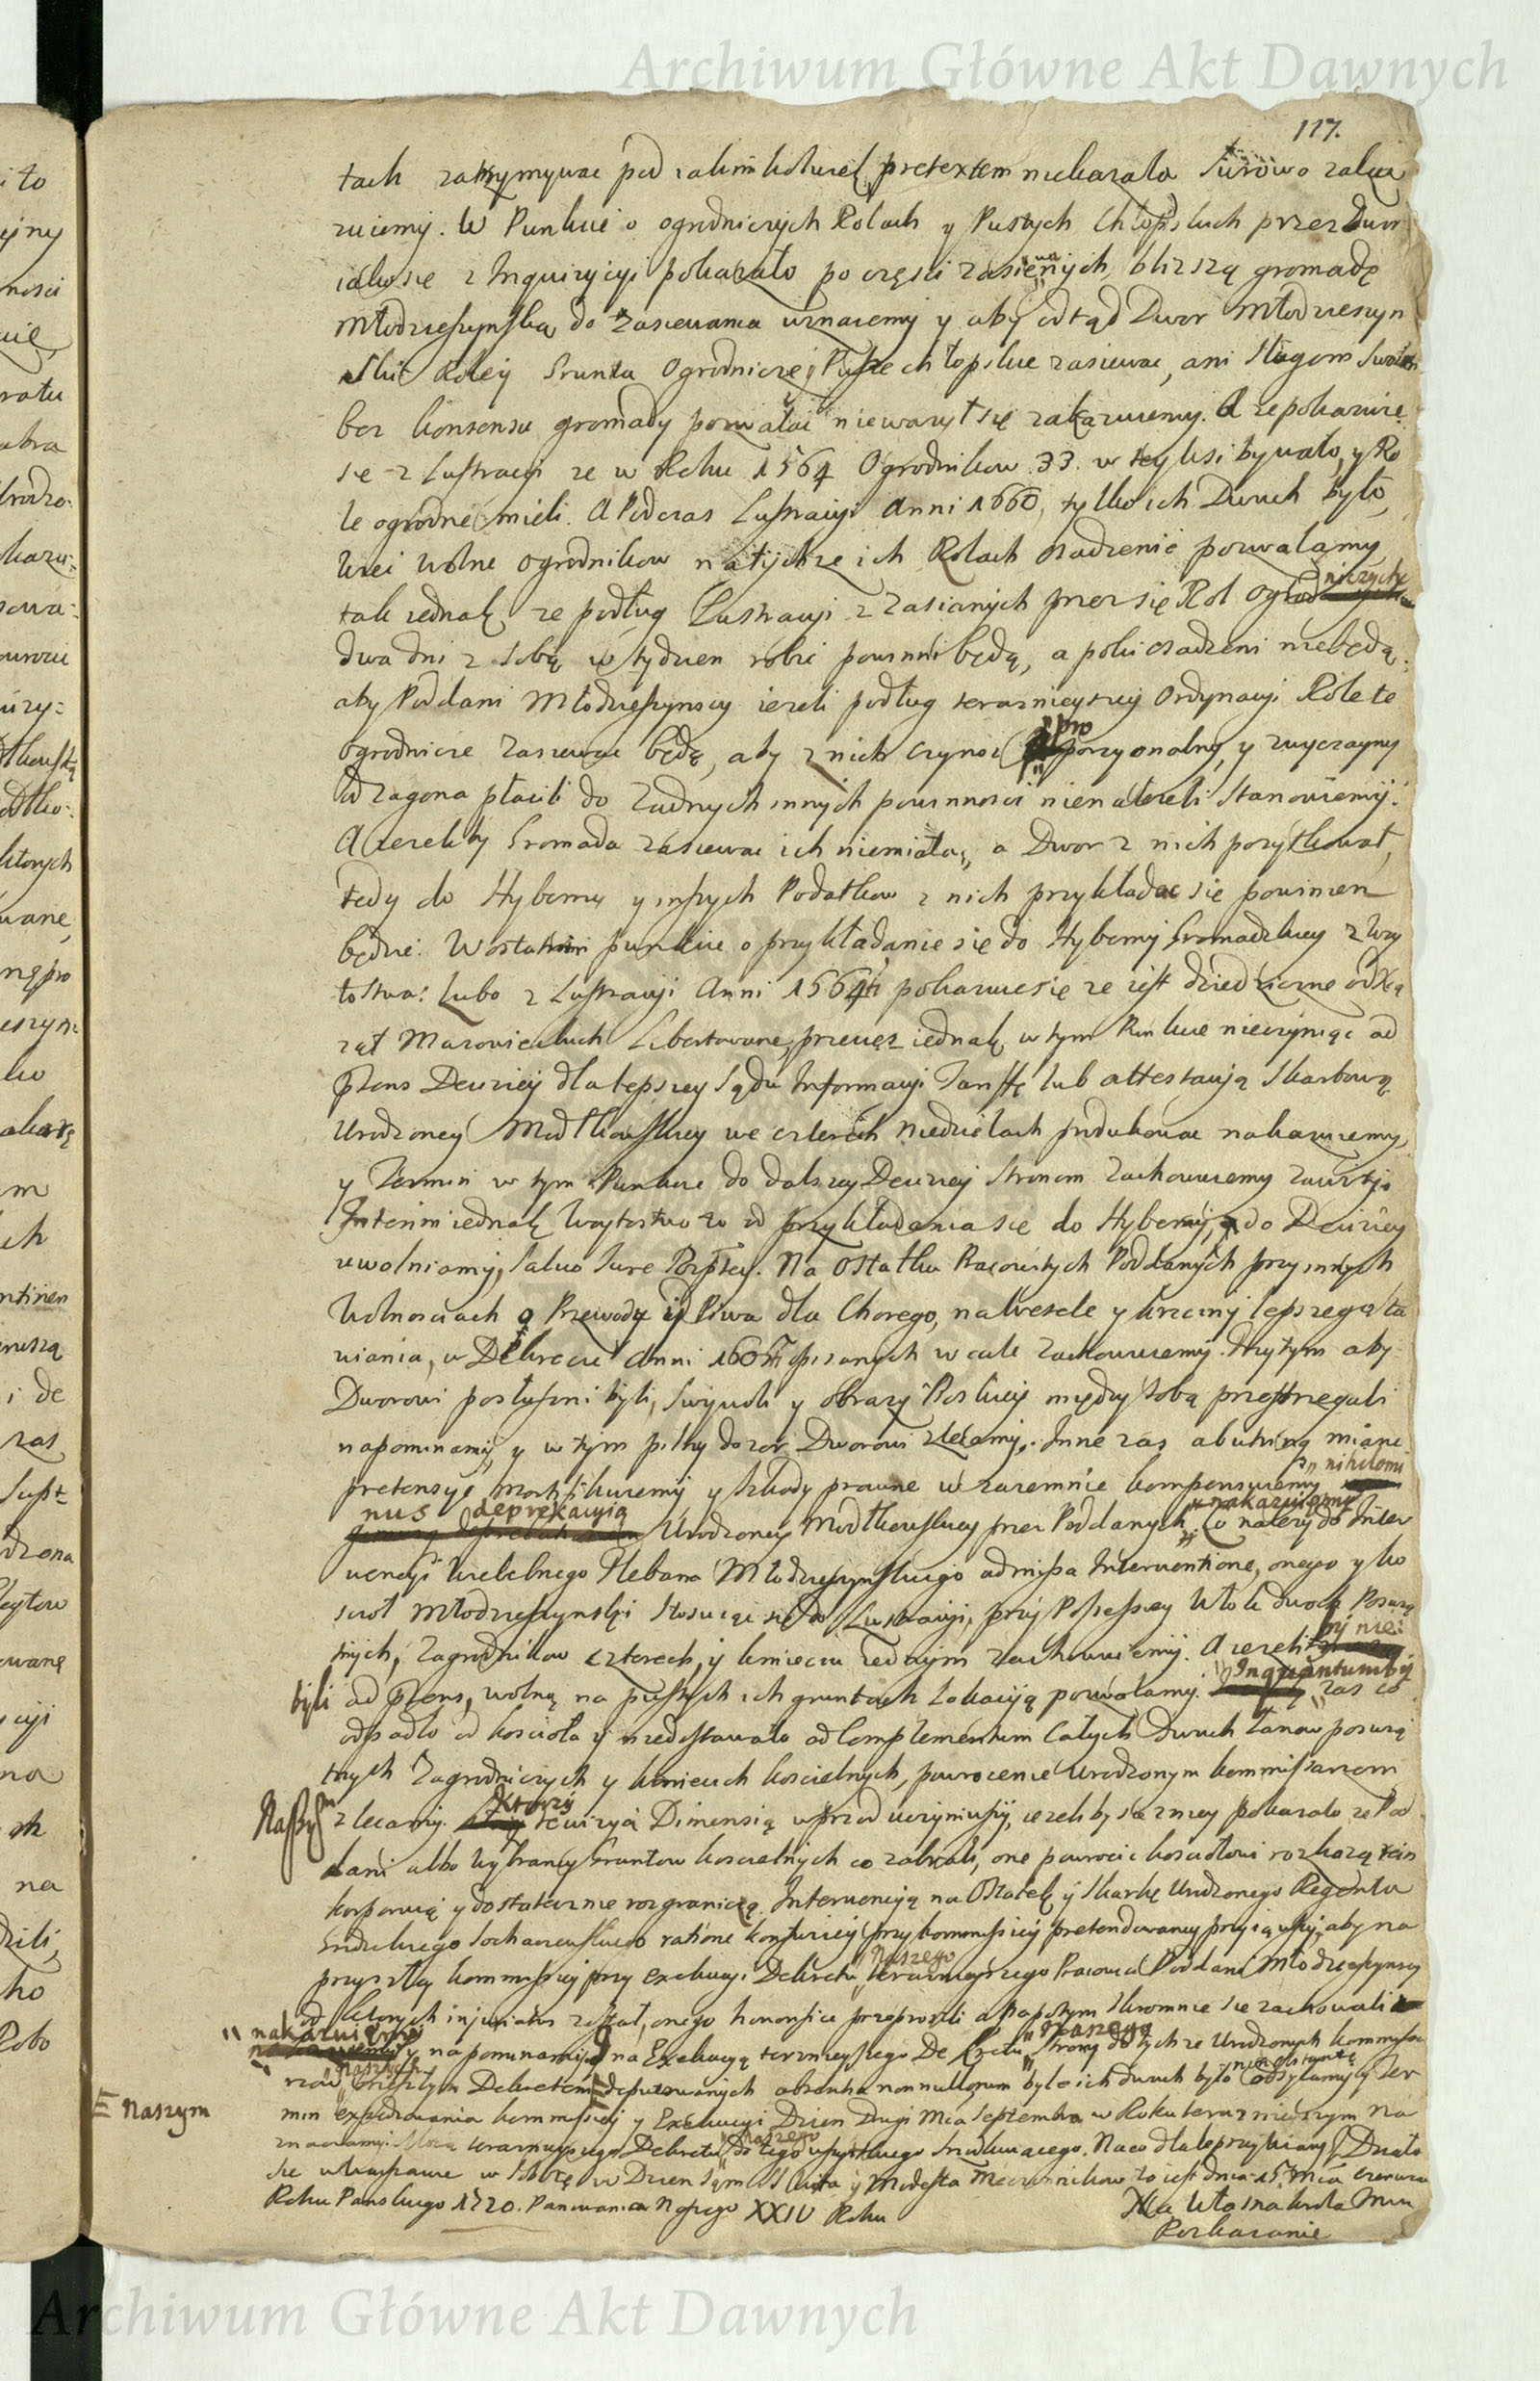 Archiwum Główne Akt Dawnych
117.
tach zatrzymywac pod iakimkolwiek pretextem niekazała surowo zaka
zuiemy. W Punkcie o ogrodniczych Rolach y Pustych Chłopskich przez Dwor
iako się z Inquizycyi pokazało po częsci zasienych, blizszą gromadę
Młodzieszynską do zasiewania uznaiemy y aby odtąd Dwor Młodzieszyn
ski Roley Grunta Ogrodnicze y Puste chłopskie zasiewac, ani sługom swoim
bez konsensu gromady pozwalac niewazył się zakazuiemy. A ze pokazuie
się z Lustracyi ze w Roku 1564 Ogrodnikow 33. w tey wsi bywało, y Ro
le ogrodne mieli. A Podczas Lustracyi Anni 1660, tylko ich Dwuch było,
wiec wolne ogrodnikow na tychze ich Rolach osadzenie pozwalamy
tak iednak ze podług Lustracyi z zasianych przez się Rol ogrodniczych
dwa dni z sobą w tydzien robic powinni będą, a poki osadzeni niebędą
aby Poddani Młodzieszynscy iezeli podług teraznieyszey Ordynacyi Role te
ogrodnicze zasiewac będą, aby z nich czynsz proporcyonalny, y zwyczayny
od zagona płacili do zadnych innych powinnosci nienalezeli stanowiemy.
A iezeliby Gromada zasiewac ich niemiała, a Dwor z nich pozytkował,
tedy do Hyberny y inszych Podatkow z nich przykładac się powinien
będzie. W ostatnim punkcie o przykładanie się do Hyberny Gromadzkiey z Woy
tostwa: Lubo z Lustracyi Anni 1564ti pokazuie się ze iest dziedziczne od Xią
ząt Mazowieckich Libertowane, przecięz iednak w tym Punkcie nieczyniąc ad
praens Decizyi dla lepszey Sądu Informacyi Taryffę lub attestacyą Skarbową
Urodzoney Modlkowskiey we czterech niedzielach produkowac nakazuiemy,
y Termin w tym Punkcie do dalszey Decizyi stronom zachowuiemy zawity.
Interim iednak Woytostwo to od przykładania się do Hyberny, do Decizyi
uwolniamy, salvo Jure Possessey. Na Ostatku Pracowitych Poddanych przy innych
Wolnosciach o Przewody y Piwa dla Chorego, na Wesele y krzciny lepszego ta
niania, w Dekrecie Anni 1605ti opisanych w cale zachowuiemy. Przytym aby
Dworowi posłuszni byli, swywoli y obrazy Boskiey między sobą przestrzegali
napominamy, y w tym pilny dozor Dworowi zlecamy. Inne zas ab utrinq miane
pretensye mortifikuiemy y szkody prawne wzaiemnie kompensuiemy nihilomi
nus deprekacyią Urodzoney Modlkowskiey przez Poddanych nakazuiemy. Co nalezy do Inter
wencyi Wielebnego Plebana Młodzieszynskiego admissa Interventione, onego y ko
scioł Młodzieszynski stosuiąc się do Lustracyi, przy Possessiey Włok dwoch Poswią
tnych, Zagrodnikow czterech, y kmieciu iednym zachowuiemy. A iezeliby nie
byli ad praens, wolną na pustych ich gruntach lokacyą pozwalamy. Inquantumby zas co
odpadło od koscioła y niedostawało ad complementum Całych Dwuch Łanow poswią
tnych Zagrodniczych y kmiecich koscielnych, powrocenie Urodzonym kommissarzom
Naszym zlecamy. Ktorzy rewizyą Dimensią wprzod uczyniwszy, iezeliby się z niey pokazało ze Pod
dani albo Wybrancy Gruntow koscielnych co zabrali, one powrocic kosciołowi rozkazą rein
korporuią y dostatecznie rozgraniczą. Interwencyią na Ostatek y Skargę Urodzonego Regenta
Grodzkiego Sochaczewskiego ratione konfuziey przy kommissiey pretendowaney przyiąwszy, aby na
przyszłey kommissiey przy exekucyi Dekretu Naszego teraznieyszego Pracowici Poddani Młodzieszynscy
od ktorych injuriatus został, onego honorifice przeprosili a napotym skromnie się zachowali
nakazuiemy y napominamy. Na Exekucyą teraznieyszego Dekretu Naszego strony do tychze Urodzonych kommissa
rzow Naszych przeszłym Dekretem Naszym deputowanych absentia nonnullorum byle ich dwuch było non obstante odsyłamy y Ter
min expedyowania kommissiey y Exekucyi Dzien Drugi Mca Septembra w Roku teraznieyszym na
znaczamy. Mocą teraznieyszego Dekretu Naszego do tego wszystkiego sciągaiącego. Na co dla lepszey wiary. Działo
się w Warszawie w Sobotę w Dzien SSm Wita y Modesta Męczennikow to iest dnia 15 Mca Czerwca
Roku Panskiego 1720. Panowania Naszego XXIV Roku
Na Własna Krola Jmci
Rozkazanie
Archiwum Główne Akt Dawnych